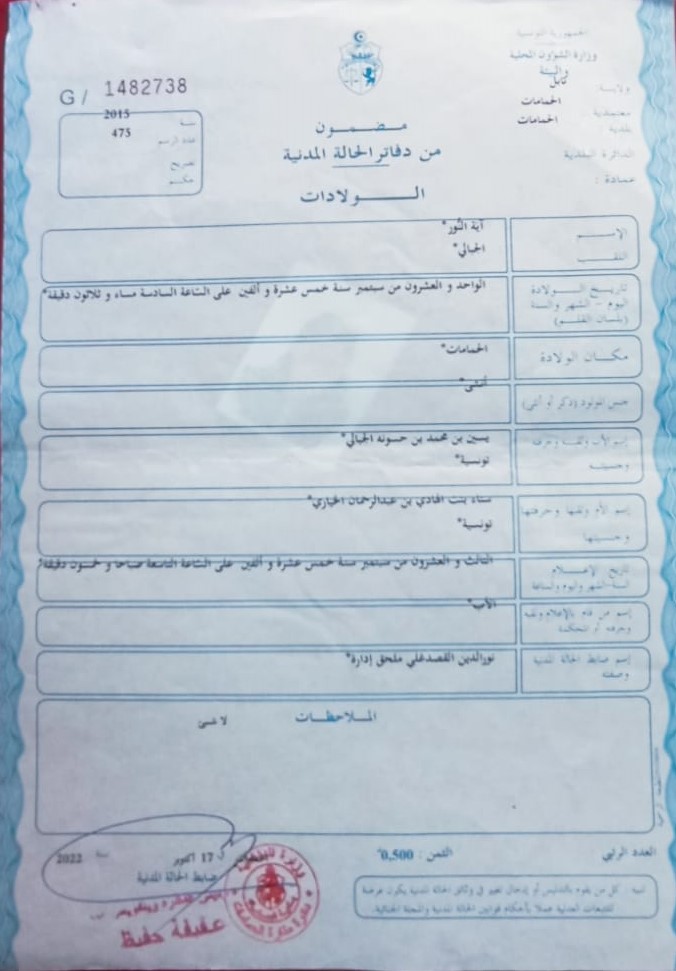 الجمهورية التونسية
وزارة الشؤون المحلية
والبيئة
ولاية نابل
معتمدية الحمامات
بلدية الحمامات
الدائرة البلدية
عمادة :
G / 1482738
سنة 2015
عدد الرسم 475
تصريح
حكم
مضمون
من دفاتر الحالة المدنية
الولادات
الإسم آية النور*
اللقب الجبالي*
تاريخ الولادة الواحد و العشرون من سبتمبر سنة خمس عشرة و ألفين على الساعة السادسة مساء و ثلاثون دقيقة*
اليوم - الشهر والسنة
(بلسان القلم)
مكان الولادة الحمامات*
جنس المولود (ذكر أو أنثى) أنثى*
إسم الأب ولقبه وحرفته يسين بن محمد بن حسونه الجبالي*
وجنسيته تونسية*
إسم الأم ولقبها وحرفتها سناء بنت الهادي بن عبدالرحمان الخياري*
وجنسيتها تونسية*
تاريخ الإعلام الثالث و العشرون من سبتمبر سنة خمس عشرة و ألفين على الساعة التاسعة صباحا و خمسون دقيقة*
السنة-الشهر واليوم والساعة
إسم من قام بالإعلام ولقبه الأب*
وحرفته أو المحكمة
إسم ضابط الحالة المدنية نورالدين القصدغلي ملحق إدارة*
وصفته
الملاحظات
لا شئ
العدد الرتبي
الثمن : 0,500
في 17 أكتوبر سنة 2022
ضابط الحالة المدنية
تنبيه : كل من يقوم بالتدليس أو إدخال تغيير في وثائق الحالة المدنية يكون عرضة
للتتبعات العدلية عملا بأحكام قوانين الحالة المدنية والمجلة الجنائية.
عفيفة حفيظ